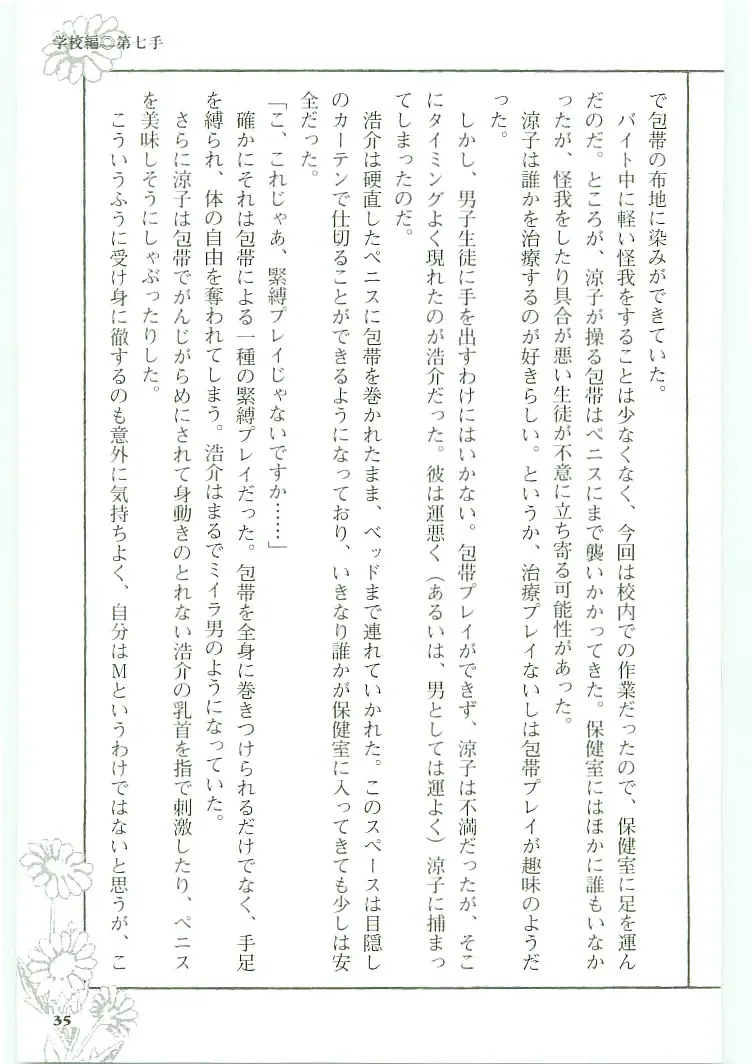 学校編◎第七手
で包帯の布地に染みができていた。
バイト中に軽い怪我をすることは少なくなく、今回は校内での作業だったので、保健室に足を運ん
だのだ。ところが、涼子が操る包帯はペニスにまで襲いかかってきた。保健室にはほかに誰もいなか
ったが、怪我をしたり具合が悪い生徒が不意に立ち寄る可能性があった。
涼子は誰かを治療するのが好きらしい。というか、治療プレイないしは包帯プレイが趣味のようだ
った。
しかし、男子生徒に手を出すわけにはいかない。包帯プレイができず、涼子は不満だったが、そこ
にタイミングよく現れたのが浩介だった。彼は運悪く（あるいは、男としては運よく）涼子に捕まっ
てしまったのだ。
浩介は硬直したペニスに包帯を巻かれたまま、ベッドまで連れていかれた。このスペースは目隠し
のカーテンで仕切ることができるようになっており、いきなり誰かが保健室に入ってきても少しは安
全だった。
「こ、これじゃあ、緊縛プレイじゃないですか……」
確かにそれは包帯による一種の緊縛プレイだった。包帯を全身に巻きつけられるだけでなく、手足
を縛られ、体の自由を奪われてしまう。浩介はまるでミイラ男のようになっていた。
さらに涼子は包帯でがんじがらめにされて身動きのとれない浩介の乳首を指で刺激したり、ペニス
を美味しそうにしゃぶったりした。
こういうふうに受け身に徹するのも意外に気持ちよく、自分はMというわけではないと思うが、こ
35